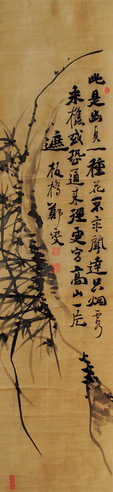 此是幽貞一種花不求聞達只烟霞
采樵或恐通来徑更寫高山一片
遮 板橋鄭燮